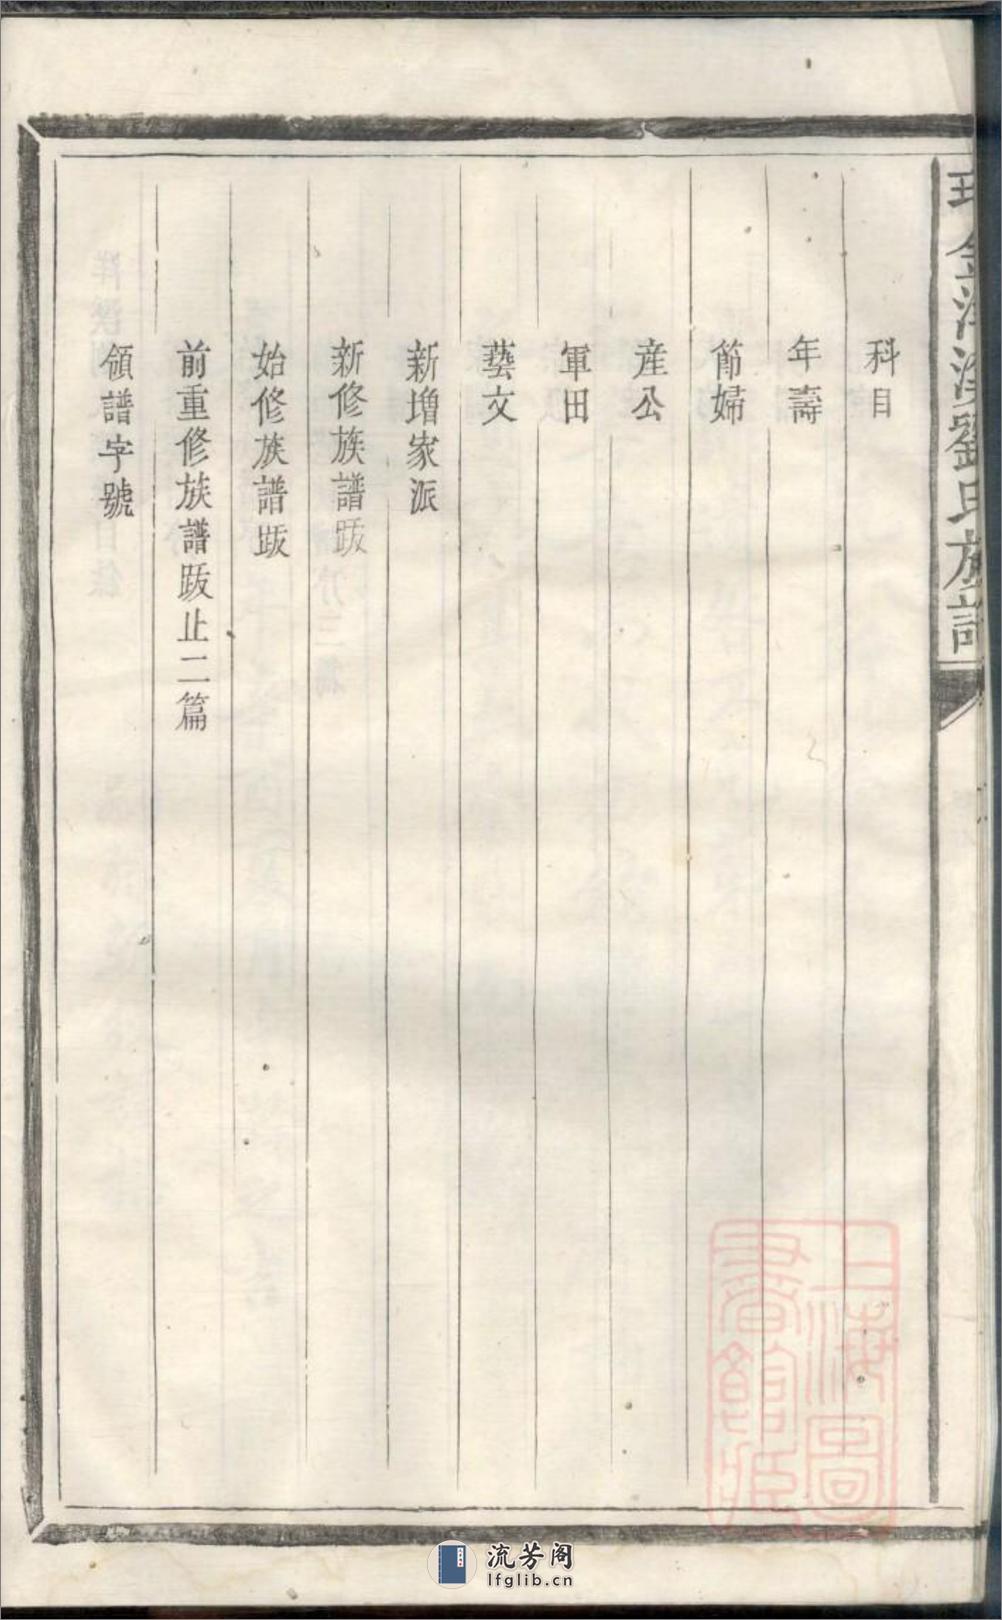 科目
年壽
節婦
産公
軍田
藝文
新增家派
新修族譜跋
始修族譜跋
前重修族譜跋止二篇
領譜字號
劉氏族譜
上海圖書館藏
流芳阁
lfglib.cn